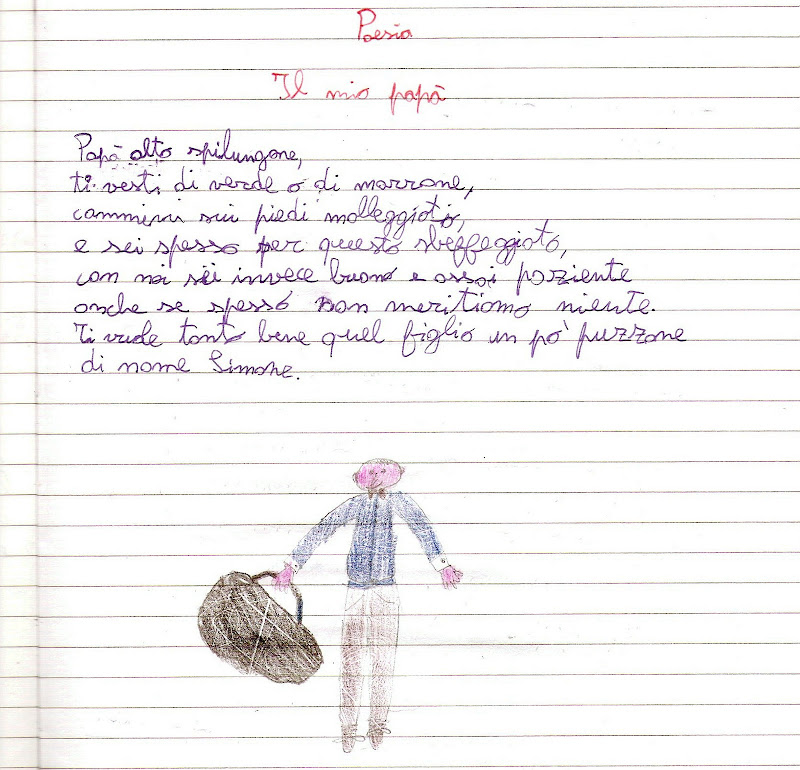 Poesia
Il mio papà
Papà alto spilungone,
ti vesti di verde o di marrone,
cammini sui piedi molleggiato,
e sei spesso per questo sbeffeggiato,
con noi sei invece buono e assai paziente
anche se spesso non meritiamo niente.
Ti vuole tanto bene quel figlio un pò puzzone
di nome Simone.